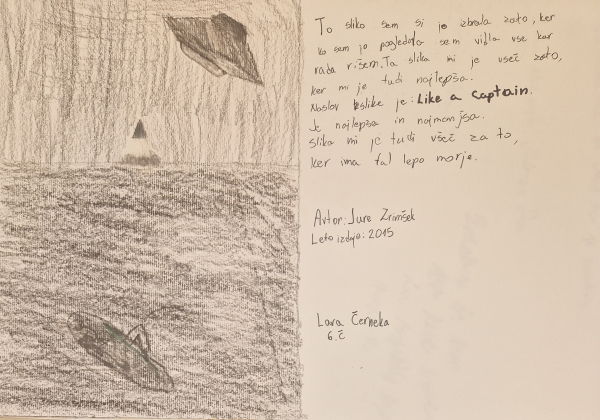 To sliko sem si jo izbrala zato, ker
ko sem jo pogledala sem vidla vse kar
rada rišem. Ta slika mi je všeč zato,
ker mi je tudi najlepša.
Naslov slike je: Like a Captain.
Je najlepša in najmanjša.
Slika mi je tudi všeč za to,
ker ima tal lepo morje.
Avtor: Jure Zrimšek
Leto izdaje: 2015
Lara Černeka
6.č